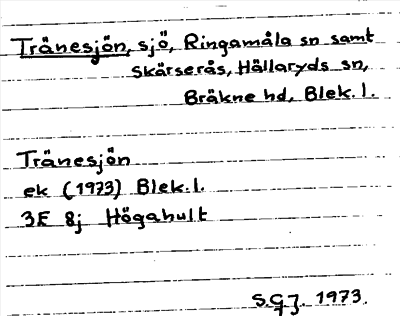 Tränesjön, sjö, Ringamåla sn samt
Skärserås, Hällaryds sn,
Bräkne hd, Blek.l.
Tränesjön
ek (1973) Blek.l.
3F 8j Högahult
S.G.J. 1973.